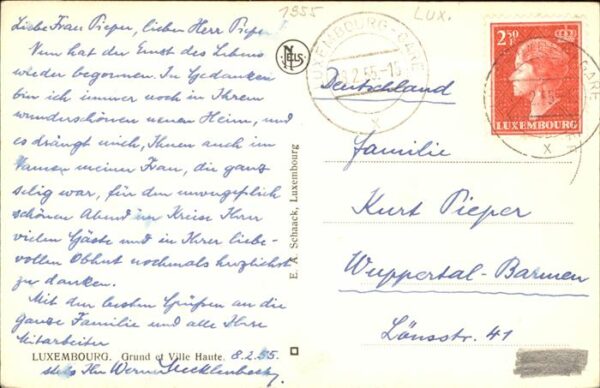 1955
LUX.
Liebe Frau Pieper, lieber Herr Pieper!
Nun hat der Ernst des Lebens
wieder begonnen. In Gedanken
bin ich immer noch in Ihrem
wunderschönen neuen Heim, und
es drängt mich, Ihnen auch im
Namen meiner Frau, die ganz
selig war, für den unvergeßlich
schönen Abend im Kreise Ihrer
vielen Gäste und in Ihrer liebe-
vollen Obhut nochmals herzlichst
zu danken.
Mit den besten Grüßen an die
ganze Familie und alle Ihre
Mitarbeiter
LUXEMBOURG. Grund et Ville Haute. 8.2.55.
stets Ihr Werner Mecklenbeck
NELS
E. A. Schaack, Luxembourg
LUXEMBOURG-GARE
2.55-15
X
2F50
LUXEMBOURG
GARE
X
Deutschland
Familie
Kurt Pieper
Wuppertal-Barmen
Lönsstr. 41